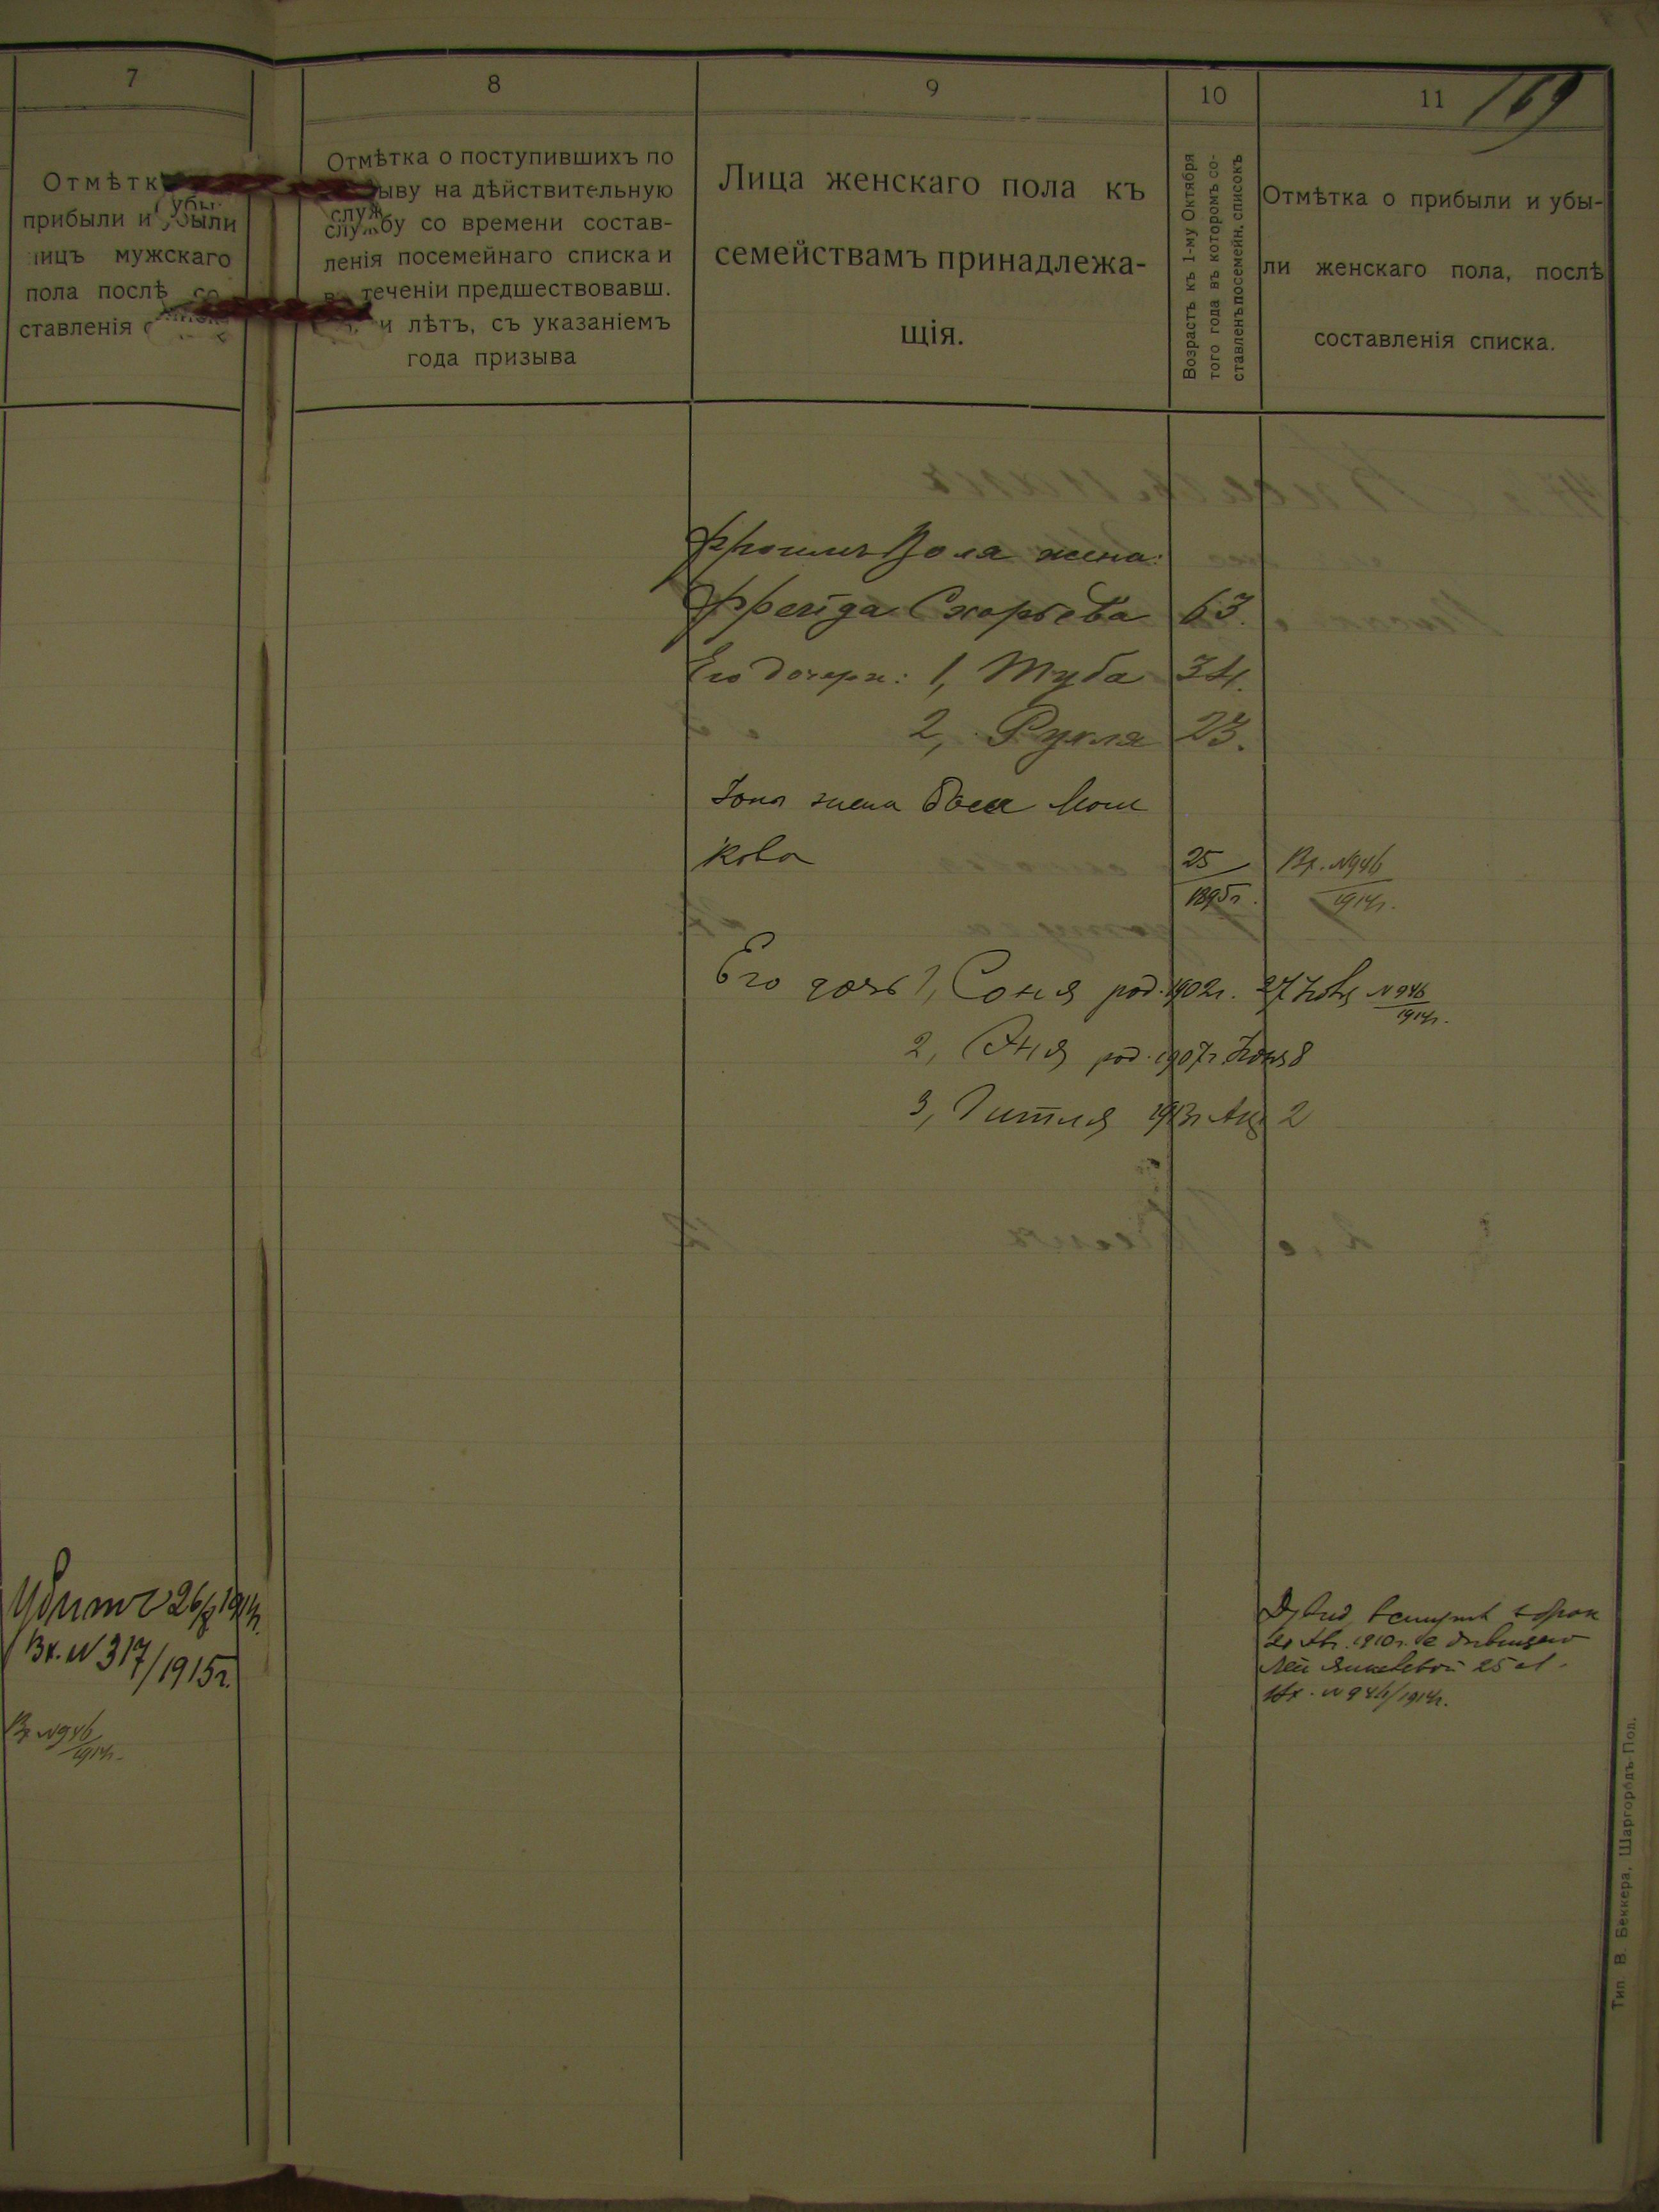 169
7
8
9
10
11
Отмѣтк
прибыли и убыли
лицъ мужскаго
пола послѣ со
ставленія
Отмѣтка о поступившихъ по
ыву на дѣйствительную
службу со времени состав-
ленія посемейнаго списка и
теченіи предшествовавш.
и лѣтъ, съ указаніемъ
года призыва
Лица женскаго пола къ
семействамъ принадлежа-
щія.
Возрастъ къ 1-му Октября
того года въ которомъ со-
ставленъ посемейн. списокъ
Отмѣтка о прибыли и убы-
ли женскаго пола, послѣ
составленія списка.
жена:
Фрейда Схарьева 63.
Его дочери: 1, Туба 34.
2, Рухля 23.
жена Бася Мош
кова 25/1895г. Вх. №946/1914г.
Его дочь 1, Соня род. 1902г. 27 №946/1914г.
2, Эня род. 1907г 8
3, Гитля 1913г Авг 2
Убитъ 26/ 1914г.
Вх. №317/1915г.
Вх №946/1914г.
вступил в брак
1910г. с девицею
Леи 25 л.
Вх. №946/1914г.
Тип. В. Беккера, Шаргородъ-Под.